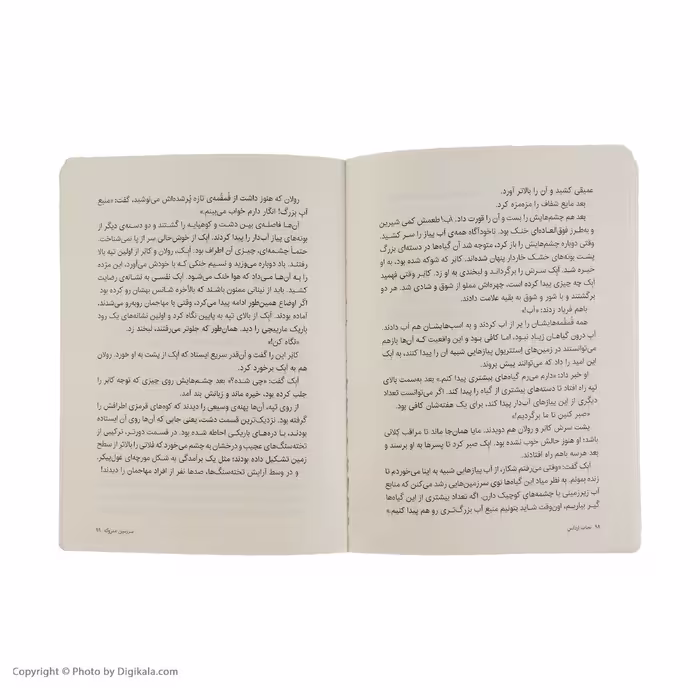 عمیقی کشید و آن را بالاتر آورد.
بعد مایع شفاف را مزه‌مزه کرد.
بعد هم چشم‌هایش را بست و آن را قورت داد. آب! طعمش کمی شیرین
و به‌طرز فوق‌العاده‌ای خنک بود. ناخودآگاه همه‌ی آب پیاز را سر کشید.
وقتی دوباره چشم‌هایش را باز کرد، متوجه شد آن گیاه‌ها در دسته‌ای بزرگ
پشت بوته‌های خشک خاردار پنهان شده‌اند. کابر که شوکه شده بود، به او
خیره شد. اَپک سرش را برگرداند و لبخندی به او زد. کابر وقتی فهمید
اَپک چه چیزی پیدا کرده است، چهره‌اش مملو از شوق و شادی شد. هر دو
برگشتند و با شور و شوق به بقیه علامت دادند.
باهم فریاد زدند: «آب!»
همه قمقمه‌هایشان را پر از آب کردند و به اسب‌هایشان هم آب دادند.
آب درون گیاهان زیاد نبود، اما کافی بود و این واقعیت که آن‌ها بازهم
می‌توانستند در زمین‌های اِستتریول پیازهایی شبیه آن را پیدا کنند، به اَپک
این امید را داد که می‌توانند پیش بروند.
او خبر داد: «دارم می‌رم گیاه‌های بیشتری پیدا کنم.» بعد به‌سمت بالای
تپه راه افتاد تا دسته‌های بیشتری پیدا کند. اگر می‌توانست تعداد
دیگری از این پیازهای آب‌دار پیدا کند، برای یک هفته‌شان کافی بود.
«صبر کنین تا ما برگردیم!»
پشت سرش کابر و رولان هم دویدند. مایا همان‌جا ماند تا مراقب کِلانی
باشد؛ او هنوز حالش خوب نشده بود. اَپک صبر کرد تا پسرها به او برسند و
بعد هرسه باهم راه افتادند.
اَپک گفت: «وقتی می‌رفتم شکار، از آب پیازهایی شبیه به اینا می‌خوردم تا
زنده بمونم. به نظر میاد این گیاه‌ها توی سرزمین‌هایی رشد می‌کنن که منابع
آب زیرزمینی یا چشمه‌های کوچیک دارن. اگه تعداد بیشتری از این گیاه‌ها
گیر بیاریم، اون‌وقت شاید بتونیم منبع آب بزرگ‌تری رو هم پیدا کنیم.»
۹۸
رولان که هنوز داشت از قُمقُمه‌ی تازه پُرشده‌اش می‌نوشید، گفت: «منبع
آبِ بزرگ! انگار دارم خواب می‌بینم.»
آن‌ها فاصله‌ی بین دشت و کوهپایه را گشتند و دو دسته‌ی دیگر از
بوته‌های پیاز آب‌دار را پیدا کردند. اَپک از خوش‌حالی سر از پا نمی‌شناخت.
حتماً چشمه‌ای، چیزی آن اطراف بود. اَپک، رولان و کابر از اولین تپه بالا
رفتند. باد دوباره می‌وزید و نسیم خنکی که با خودش می‌آورد، این مژده
را به آن‌ها می‌داد که هوا خنک می‌شود. اَپک نفسی به نشانه‌ی رضایت
کشید. باید از نینانی ممنون باشند که بالأخره شانس بهشان رو کرده بود
اگر اوضاع همین‌طور ادامه پیدا می‌کرد، وقتی با مهاجمان روبه‌رو می‌شدند،
آماده بودند. اَپک از بالای تپه به پایین نگاه کرد و اولین نشانه‌های یک رود
باریک مارپیچی را دید. همان‌طور که جلوتر می‌رفتند، لبخند زد.
«نگاه کن!»
کابر این را گفت و آن‌قدر سریع ایستاد که اَپک از پشت به او خورد. رولان
هم به اَپک برخورد کرد.
اَپک گفت: «چی شده؟» بعد چشم‌هایش روی چیزی که توجه کابر را
جلب کرده بود، خیره ماند و زبانش بند آمد.
از روی تپه، آن‌ها پهنه‌ی وسیعی را دیدند که کوه‌های قرمزی اطرافش را
گرفته بود. نزدیک‌ترین قسمت دشت، یعنی جایی که آن‌ها روی آن ایستاده
بودند، با دره‌های باریکی احاطه شده بود. در قسمت دورتر، ترکیبی از
تخته‌سنگ‌های عجیب و درخشان به چشم می‌خورد که فلاتی را بالاتر از سطح
زمین تشکیل داده بودند؛ مثل یک برآمدگی به شکل مورچه‌ای غول‌پیکر.
و در وسط آرایش تخته‌سنگ‌ها، صدها نفر از افراد مهاجمان را دیدند!
۹۹
Copyright © Photo by Digikala.com